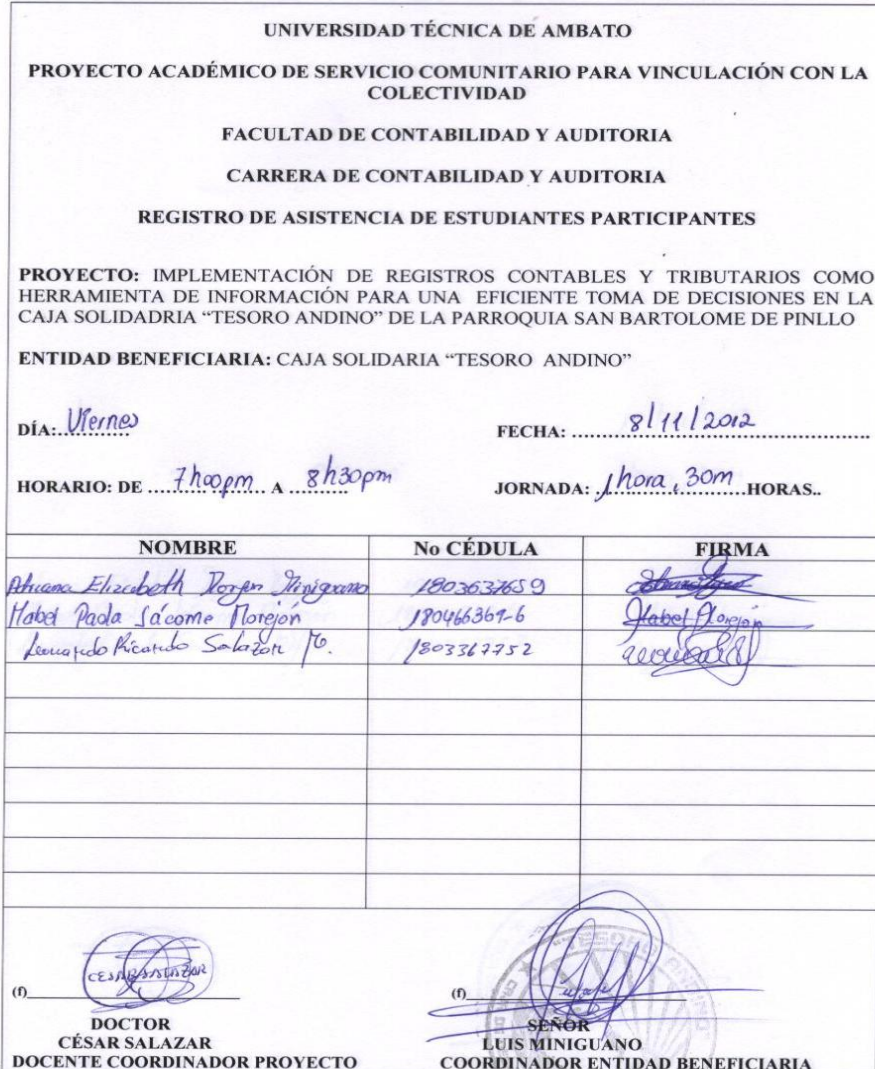 UNIVERSIDAD TÉCNICA DE AMBATO
PROYECTO ACADÉMICO DE SERVICIO COMUNITARIO PARA VINCULACIÓN CON LA
COLECTIVIDAD
FACULTAD DE CONTABILIDAD Y AUDITORIA
CARRERA DE CONTABILIDAD Y AUDITORIA
REGISTRO DE ASISTENCIA DE ESTUDIANTES PARTICIPANTES
PROYECTO: IMPLEMENTACIÓN DE REGISTROS CONTABLES Y TRIBUTARIOS COMO
HERRAMIENTA DE INFORMACIÓN PARA UNA EFICIENTE TOMA DE DECISIONES EN LA
CAJA SOLIDADRIA “TESORO ANDINO” DE LA PARROQUIA SAN BARTOLOME DE PINLLO
ENTIDAD BENEFICIARIA: CAJA SOLIDARIA “TESORO ANDINO”
DÍA: Viernes FECHA: 8/11/2012
HORARIO: DE 7h00pm A 8h30pm JORNADA: 1hora, 30m HORAS..
NOMBRE No CÉDULA FIRMA
Elizabeth 1803637659
Mabel Paola Jácome Morejón 180466369-6 Mabel Morejón
Leonardo Ricardo Salazar M. 1803367752
CESAR SALAZAR "TESORO ANDINO"
(f) (f)
DOCTOR SEÑOR
CÉSAR SALAZAR LUIS MINIGUANO
DOCENTE COORDINADOR PROYECTO COORDINADOR ENTIDAD BENEFICIARIA